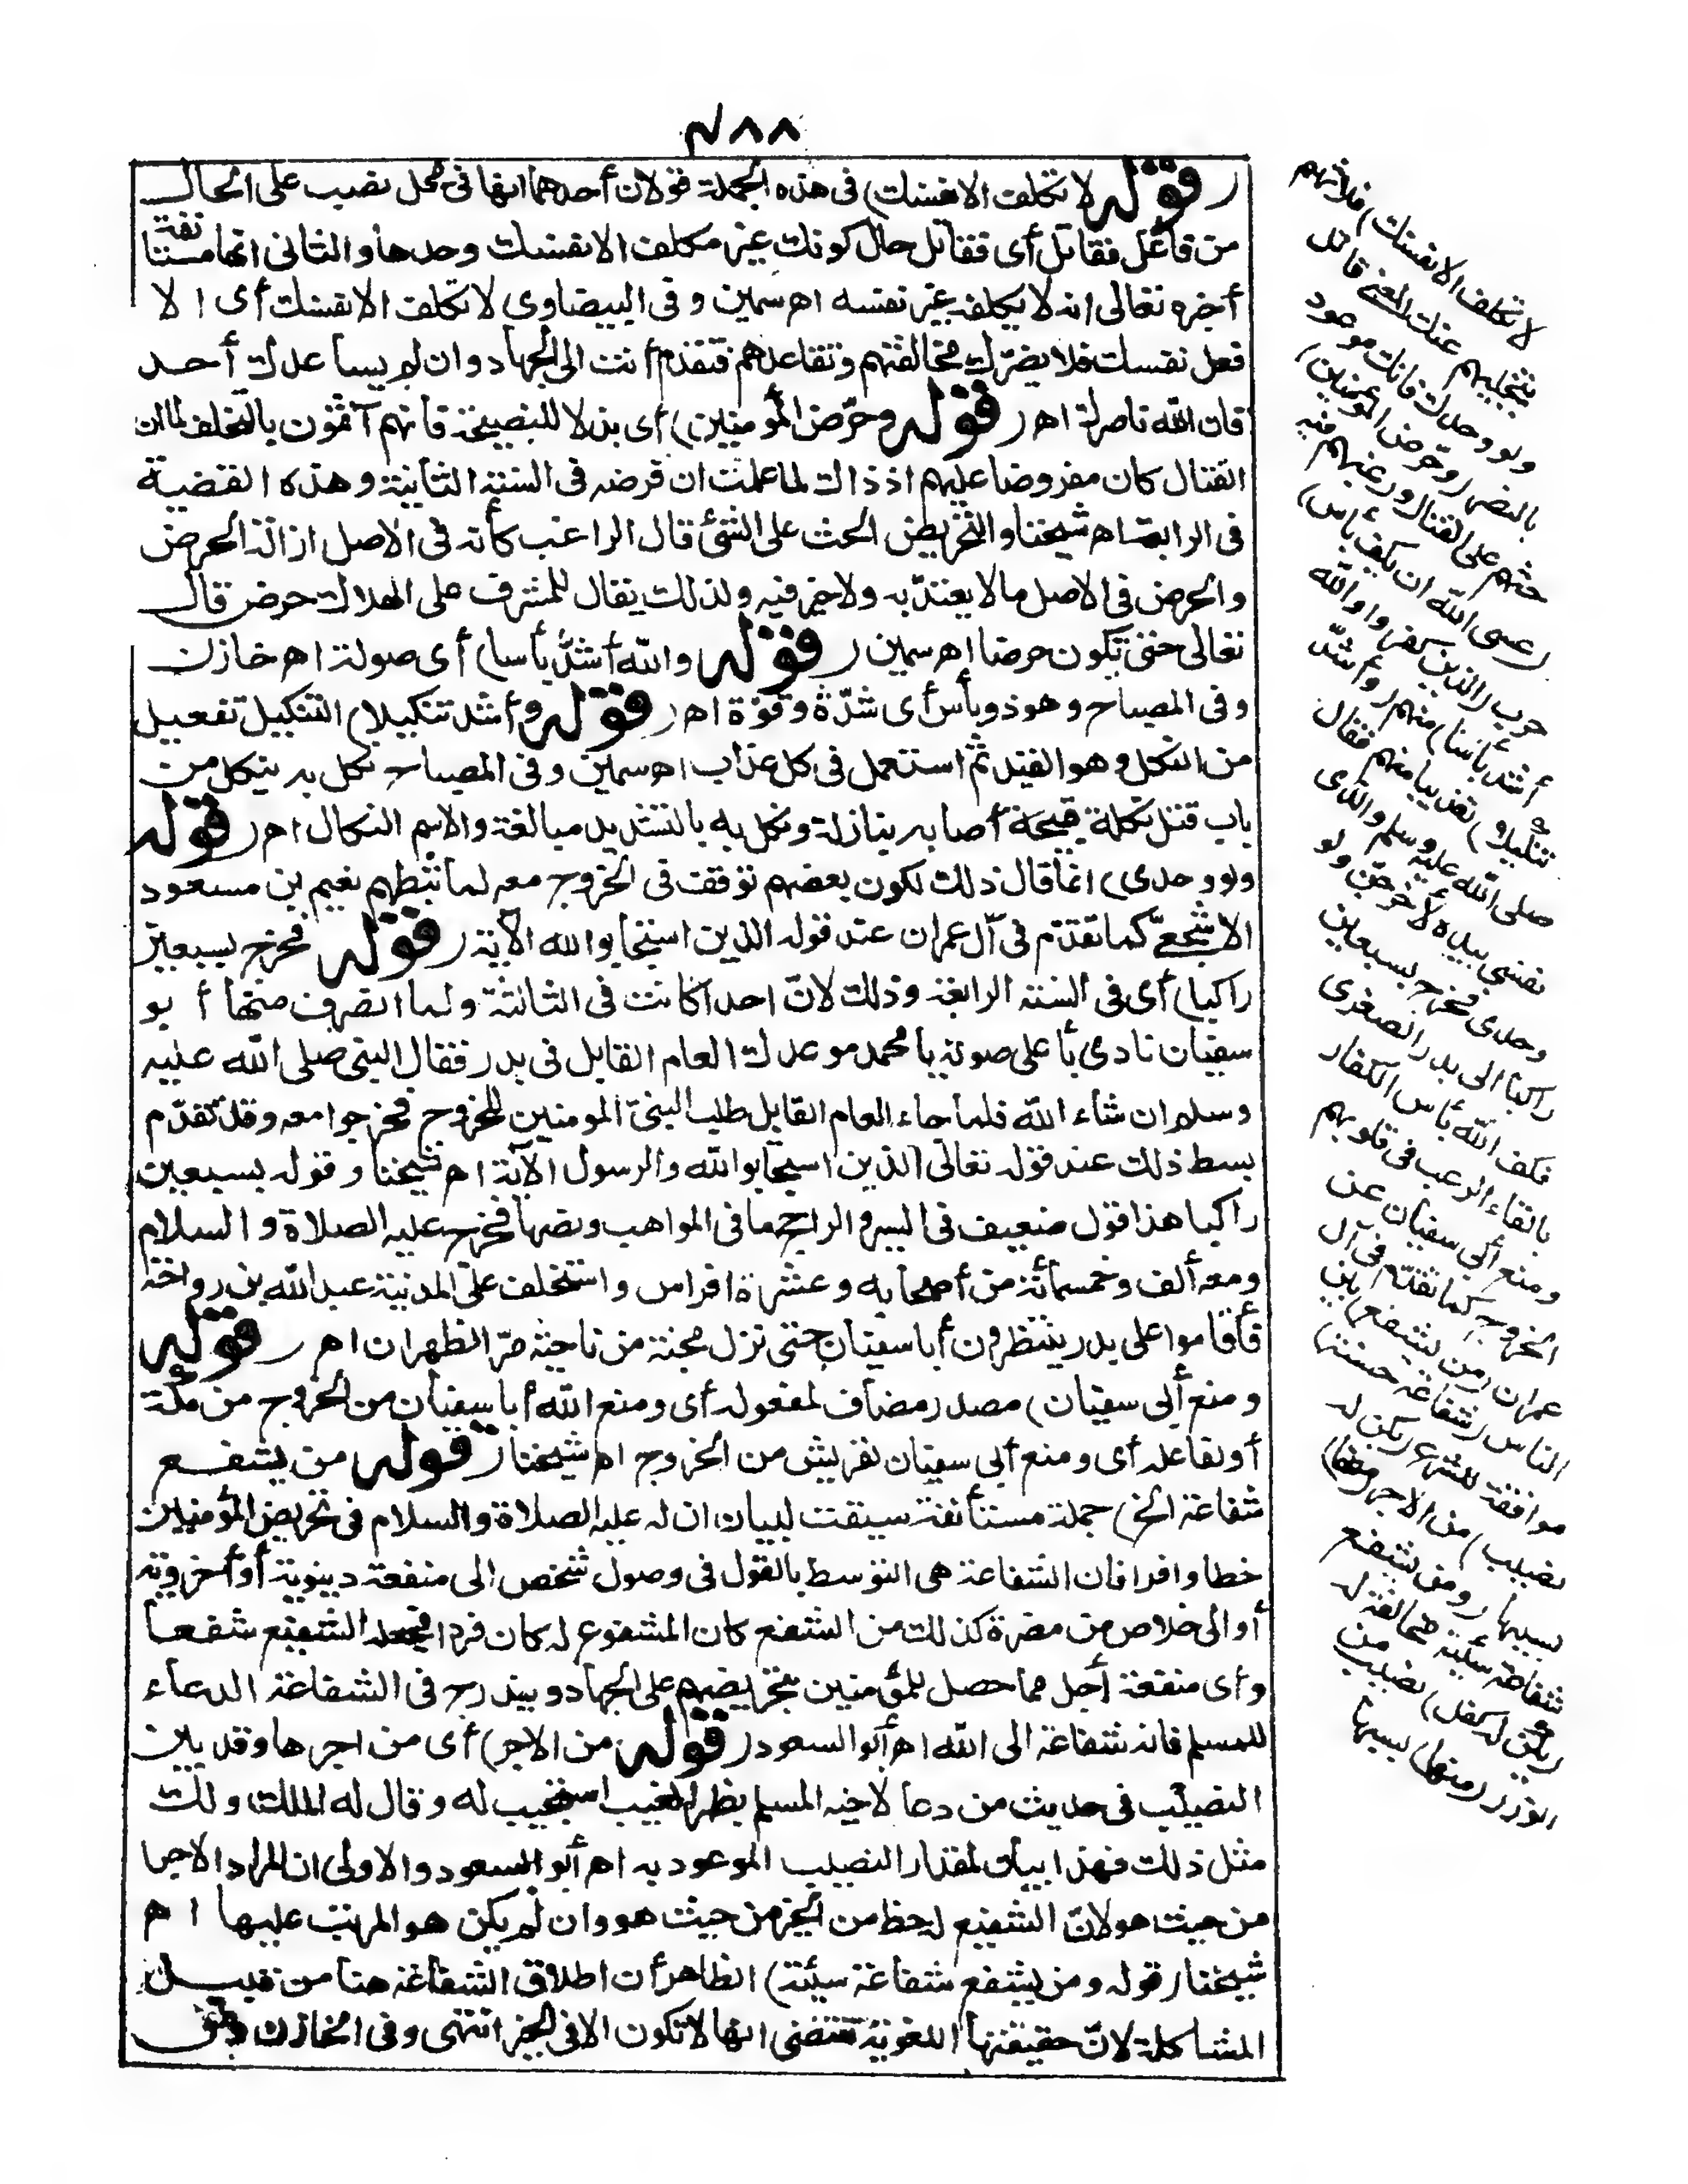 ٤٨٨
(قوله لا تكلف الا نفسك) فى هذه الجملة قولان أحدهما انها فى محل نصب على الحال
من فاعل فقاتل أى فقاتل حال كونك غير مكلف الا نفسك وحدها والثانى انها مستأنفة
أخبره تعالى انه لا يكلف غير نفسه اه سمين وفى البيضاوى لا تكلف الا نفسك أى الا
فعل نفسك فلا يضرك مخالفتهم وتقاعدهم فتقدم أنت الى الجهاد وان لم يساعدك أحد
فان الله ناصرك اه (قوله وحرّض المؤمنين) أى بذلا للنصيحة فانهم آثمون بالتخلف لما ان
القتال كان مفروضا عليهم اذ ذاك لما علمت ان فرضه فى السنة الثانية وهذه القضية
فى الرابعة اه شيخنا والتحريض الحث على الشئ قال الراغب كأنه فى الاصل ازالة الحرض
والحرض فى الاصل ما لا يعتدّ به ولا خير فيه ولذلك يقال للمشرف على الهلاك حرض قال
تعالى حتى تكون حرضا اه سمين (قوله والله أشدّ بأسا) أى صولة اه خازن
وفى المصباح وهو ذو بأس أى شدّة وقوّة اه (قوله وأشد تنكيلا) التنكيل تفعيل
من النكل وهو القيد ثم استعمل فى كل عذاب اه سمين وفى المصباح نكل به ينكل من
باب قتل نكلة قبيحة أصابه بنازلة ونكل به بالتشديد مبالغة والاسم النكال اه (قوله
ولو وحدى) انما قال ذلك لكون بعضهم توقف فى الخروج معه لما ثبطهم نعيم بن مسعود
الاشجعىّ كما تقدّم فى آل عمران عند قوله الذين استجابوا لله الآية (قوله فخرج بسبعين
راكبا) أى فى السنة الرابعة وذلك لانّ احدا كانت فى الثالثة ولما انصرف منها أبو
سفيان نادى بأعلى صوته يا محمد موعدك العام القابل فى بدر فقال النبى صلى الله عليه
وسلم ان شاء الله فلما جاء العام القابل طلب النبىّ المؤمنين للخروج فخرجوا معه وقد تقدّم
بسط ذلك عند قوله تعالى الذين استجابوا لله والرسول الآية اه شيخنا وقوله بسبعين
راكبا هذا قول ضعيف فى السير والراجح ما فى المواهب ونصها فخرج عليه الصلاة والسلام
ومعه ألف وخمسمائة من أصحابه وعشرة افراس واستخلف على المدينة عبد الله بن رواحة
فأقاموا على بدر ينتظرون أبا سفيان حتى نزل مجنة من ناحية مرّ الظهران اه (قوله
ومنع أبى سفيان) مصدر مضاف لمفعوله أى ومنع الله أبا سفيان من الخروج من مكة
أو لفاعله أى ومنع أبى سفيان لقريش من الخروج اه شيخنا (قوله من يشفع
شفاعة الخ) جملة مستأنفة سيقت لبيان ان له عليه الصلاة والسلام فى تحريض المؤمنين
حظا وافرا فان الشفاعة هى التوسط بالقول فى وصول شخص الى منفعة دينوية أو أخروية
أو الى خلاص من مضرة كذلك من الشفع كان المشفوع له كان فردا فجعله الشفيع شفعا
وأى منفعة أجل مما حصل للمؤمنين بتحريضهم على الجهاد ويندرج فى الشفاعة الدعاء
للمسلم فانه شفاعة الى الله اه أبو السعود (قوله من الاجر) أى من اجرها وقد بين
النصيب فى حديث من دعا لاخيه المسلم بظهر الغيب استجيب له وقال له الملك ولك
مثل ذلك فهذا بيان لمقدار النصيب الموعود به اه أبو السعود والاولى ان المراد الاجر
من حيث هو لانّ الشفيع له حظ من الخير من حيث هو وان لم يكن هو المرتب عليها اه
شيخنا (قوله ومن يشفع شفاعة سيئة) الظاهر أن اطلاق الشفاعة هنا من قبيل
المشاكلة لانّ حقيقتها اللغوية تقتضى انها لا تكون الا فى الخير انتهى وفى الخازن
لا تكلف الا نفسك) فلا تهتم
بتخلفهم عنك المعنى قاتل
ولو وحدك فانك موعود
بالنصر (وحرّض المؤمنين)
حثهم على القتال ورغبهم فيه
(عسى الله ان يكف بأس)
حرب (الذين كفروا والله
أشد بأسا) منهم (وأشدّ
تنكيلا) تعذيبا منهم فقال
صلى الله عليه وسلم والذى
نفسى بيده لأخرجنّ ولو
وحدى فخرج بسبعين
راكبا الى بدر الصغرى
فكف الله بأس الكفار
بالقاء الرعب فى قلوبهم
ومنع أبى سفيان عن
الخروج كما تقدّم فى آل
عمران (من يشفع) بين
الناس (شفاعة حسنة)
موافقة للشرع (يكن له
نصيب) من الاجر (منها)
بسببها (ومن يشفع
شفاعة سيئة) مخالفة له
(يكن له كفل) نصيب من
الوزر (منها) بسببها